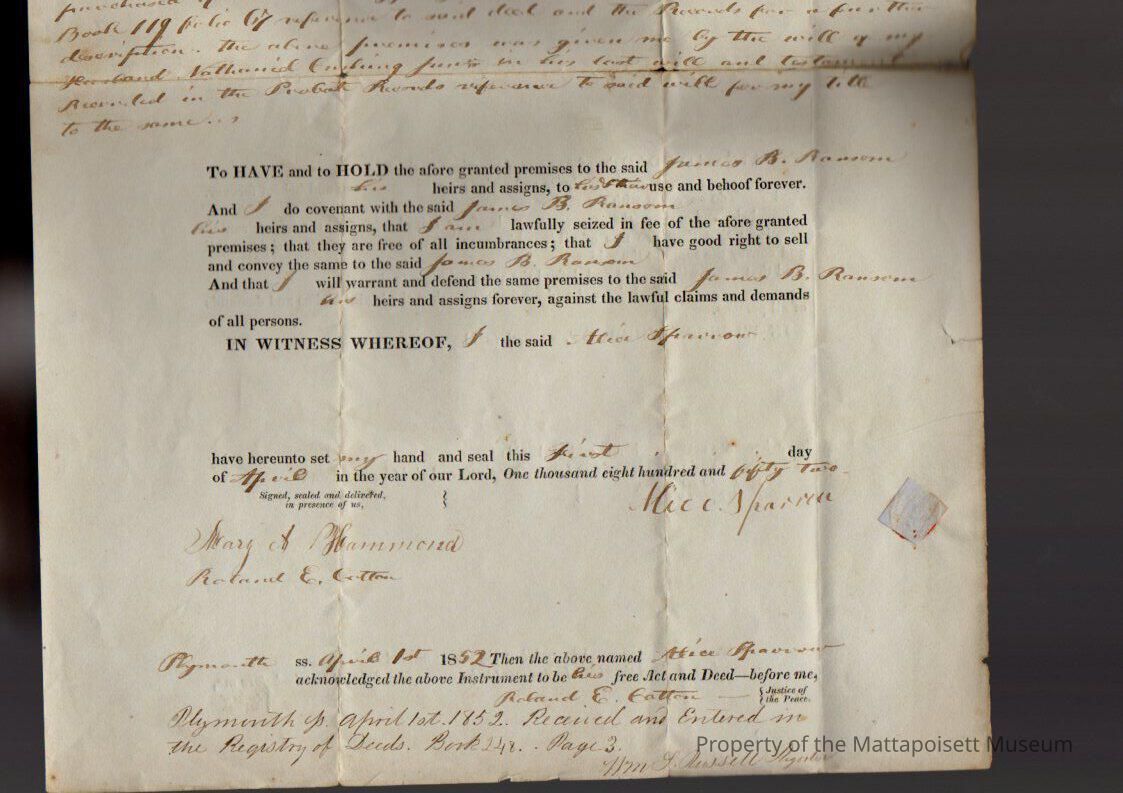 purchased of
Book 119 folio 67 reference to said deed and the Records for a further
description. the above premises was given me by the will of my
Husband Nathaniel Cushing in his last will and testament
Recorded in the Probate Records reference to said will for my title
to the same
To HAVE and to HOLD the afore granted premises to the said James B. Ransom
his heirs and assigns, to use and behoof forever.
And I do covenant with the said James B. Ransom
his heirs and assigns, that I am lawfully seized in fee of the afore granted
premises; that they are free of all incumbrances; that I have good right to sell
and convey the same to the said James B. Ransom
And that I will warrant and defend the same premises to the said James B. Ransom
his heirs and assigns forever, against the lawful claims and demands
of all persons.
IN WITNESS WHEREOF, I the said Alice Sparrow
have hereunto set my hand and seal this first day
of April in the year of our Lord, One thousand eight hundred and fifty two
Signed, sealed and delivered,
in presence of us,
Alice Sparrow
Mary A Hammond
Roland E. Cotton
Plymouth ss. April 1st 1852 Then the above named Alice Sparrow
acknowledged the above Instrument to be his free Act and Deed—before me,
Roland E. Cotton — Justice of
the Peace.
Plymouth ss. April 1st. 1852. Received and Entered in
the Registry of Deeds. Book Page 3.
Wm S. Russell Register
Property of the Mattapoisett Museum